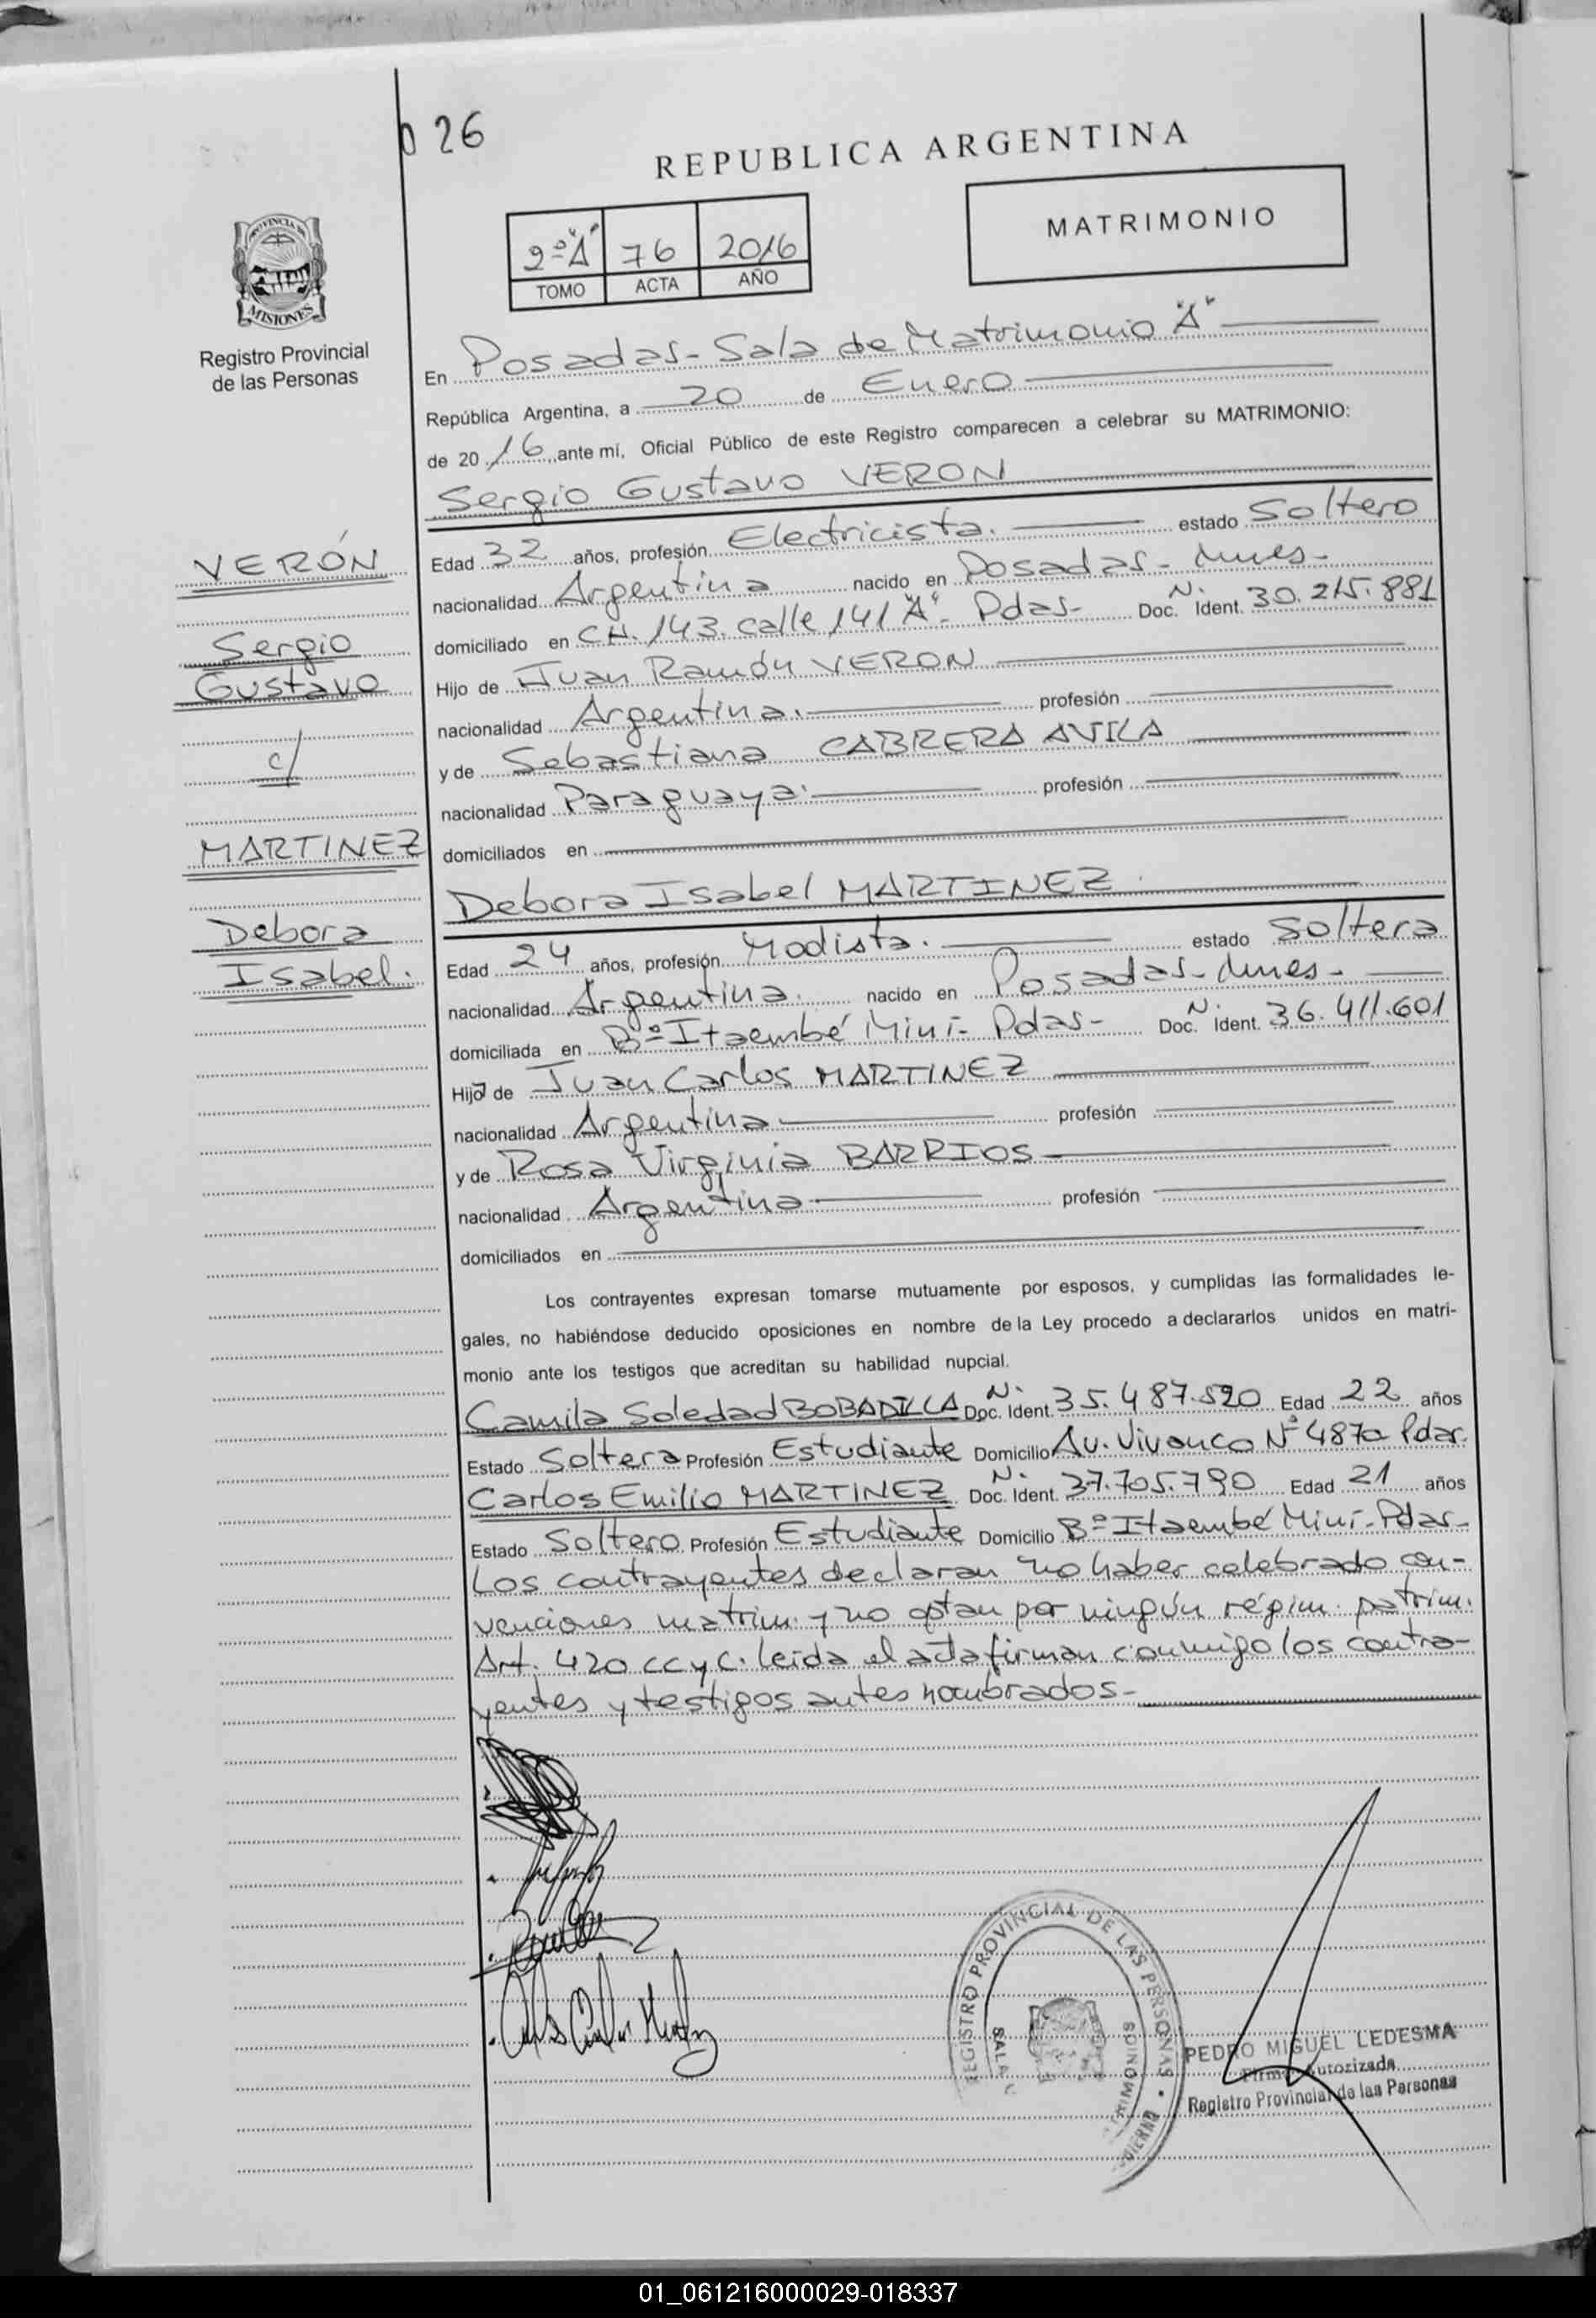 026
REPUBLICA ARGENTINA
PROVINCIA DE
MISIONES
Registro Provincial
de las Personas
2º "A" 76 2016
TOMO ACTA AÑO
MATRIMONIO
En Posadas - Sala de Matrimonio "A"
República Argentina, a 20 de Enero
de 2016 ante mi, Oficial Público de este Registro comparecen a celebrar su MATRIMONIO:
Sergio Gustavo VERON
VERÓN
Sergio
Gustavo
c/
MARTINEZ
Debora
Isabel.
Edad 32 años, profesión Electricista. estado Soltero
nacionalidad Argentina nacido en Posadas - Mnes-
domiciliado en CH. 143. calle 141 "A" - Pdas- Doc. Ident. Nº 30.215.881
Hijo de Juan Ramón VERON
nacionalidad Argentina. profesión
y de Sebastiana CABRERA AVILA
nacionalidad Paraguaya. profesión
domiciliados en
Debora Isabel MARTINEZ.
Edad 24 años, profesión Modista. estado Soltera
nacionalidad Argentina. nacido en Posadas - Mnes-
domiciliada en Bº Itaembé Mini - Pdas- Doc. Ident. Nº 36.411.601
Hija de Juan Carlos MARTINEZ
nacionalidad Argentina profesión
y de Rosa Virginia BARRIOS
nacionalidad Argentina profesión
domiciliados en
Los contrayentes expresan tomarse mutuamente por esposos, y cumplidas las formalidades le-
gales, no habiéndose deducido oposiciones en nombre de la Ley procedo a declararlos unidos en matri-
monio ante los testigos que acreditan su habilidad nupcial.
Camila Soledad BOBADILLA Doc. Ident. Nº 35.487.520 Edad 22 años
Estado Soltera Profesión Estudiante Domicilio Av. Vivanco Nº 487a Pdas.
Carlos Emilio MARTINEZ Doc. Ident. Nº 37.705.790 Edad 21 años
Estado Soltero Profesión Estudiante Domicilio Bº Itaembé Mini - Pdas-
Los contrayentes declaran no haber celebrado con-
venciones matrim. y no optan por ningún régim. patrim.
Art. 420 CCyC. leida el acta firman conmigo los contra-
yentes y testigos antes nombrados-
REGISTRO PROVINCIAL DE LAS PERSONAS
SALA
PEDRO MIGUEL LEDESMA
Firma Autorizada
Registro Provincial de las Personas
01_061216000029-018337